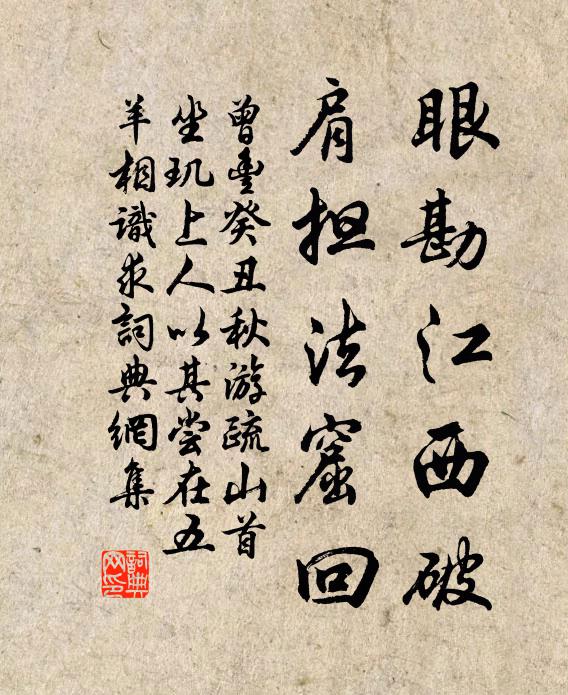 眼勘江西破
肩担法窟回
曾豐癸丑秋游疏山首
坐玑上人以其尝在五
羊相識求詞典網集
詞典
网印